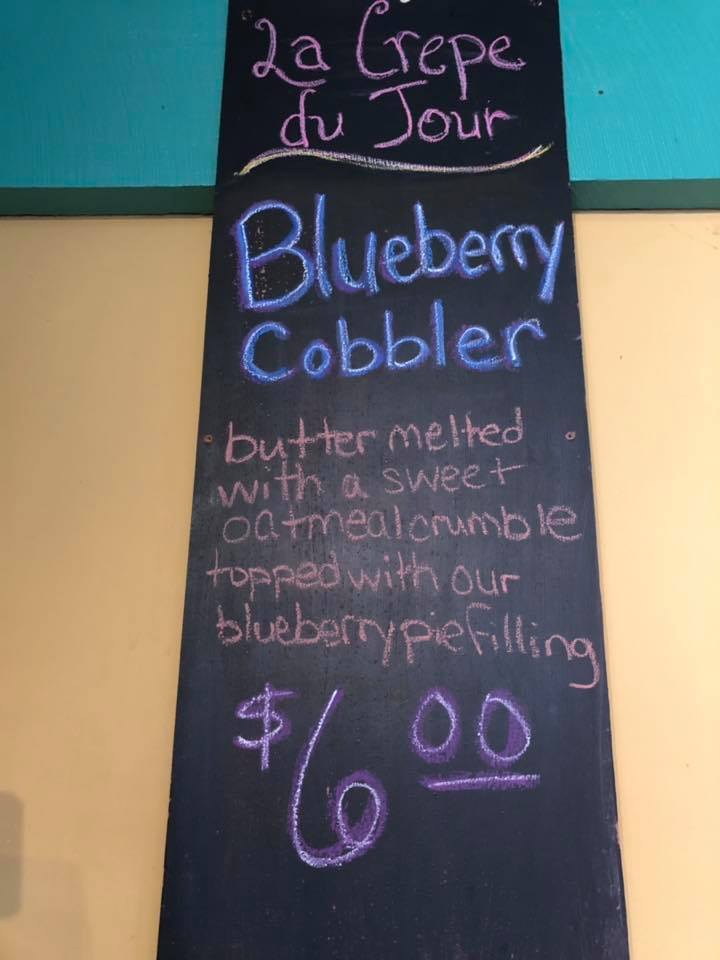 La Crepe
du Jour
Blueberry
Cobbler
butter melted
with a sweet
oatmeal crumble
topped with our
blueberry pie filling
$6.00